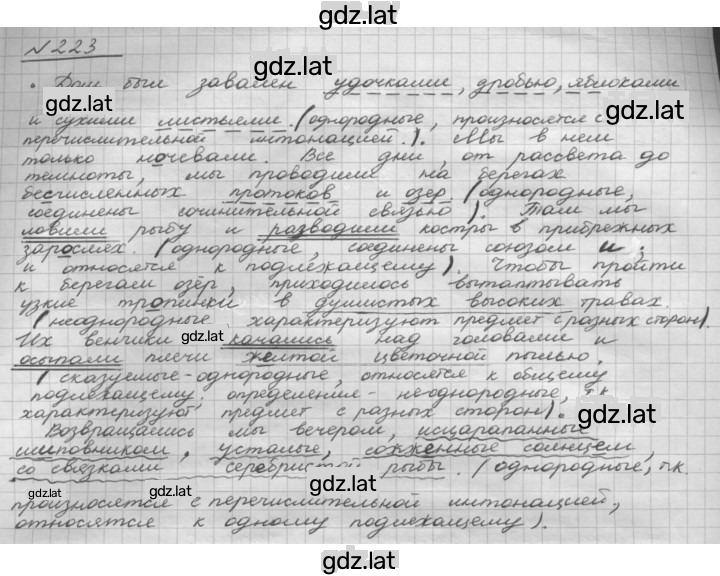 gdz.lat
№223
gdz.lat
Дом был завален удочками, дробью, яблоками
gdz.lat gdz.lat
и сухими листьями. (однородные, произносятся с
перечислительной интонацией.). Мы в нем
только ночевали. Все дни, от рассвета до
gdz.lat
темноты, мы проводили на берегах
бесчисленных протоков и озер. (однородные,
соединены сочинительной связью). Там мы
ловили рыбу и разводили костры в прибрежных
gdz.lat gdz.lat
зарослях. (однородные, соединены союзом и,
и относятся к подлежащему). Чтобы пройти
к берегам озёр, приходилось вытаптывать
узкие тропинки в душистых высоких травах.
(неоднородные характеризуют предмет с разных сторон).
gdz.lat
Их венчики качались над головами и
осыпали плечи желтой цветочной пылью.
(сказуемые-однородные, относятся к общему
подлежащему. определения - неоднородные, т.к
характеризуют предмет с разных сторон).
gdz.lat
Возвращались мы вечером, исцарапанные
шиповником, усталые, сожженные солнцем,
со связками серебристой рыбы. (однородные, т.к.
gdz.lat gdz.lat gdz.lat
произносятся с перечислительной интонацией,
относятся к одному подлежащему).
gdz.lat